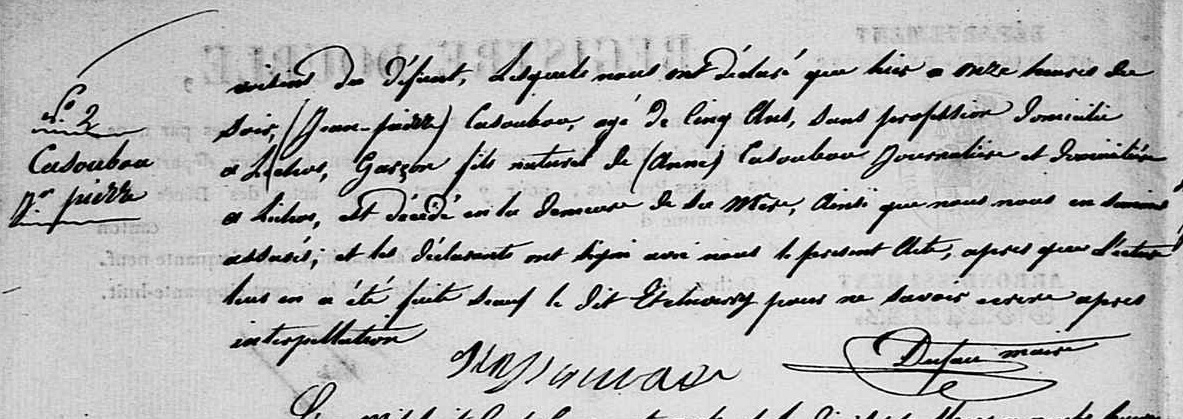 N° 2
Casoubou
Jn pierre
voisins du défunt, Lesquels nous ont déclaré que hier a onze heures du
soir, (Jean-pierre) Casoubou, agé de Cinq Ans, sans profession domicilié
a Lichos, Garçon fils naturel de (Anne) Casoubou Journalière et domiciliée
a Lichos, est décédé en la demeure de sa Mère, Ainsi que nous nous en sommes
assurés; et les déclarants ont signé avec nous le présent Acte, apres que Lecture
leur en a été faite sauf le dit pour ne savoir ecrire apres
interpellation
Dufau maire